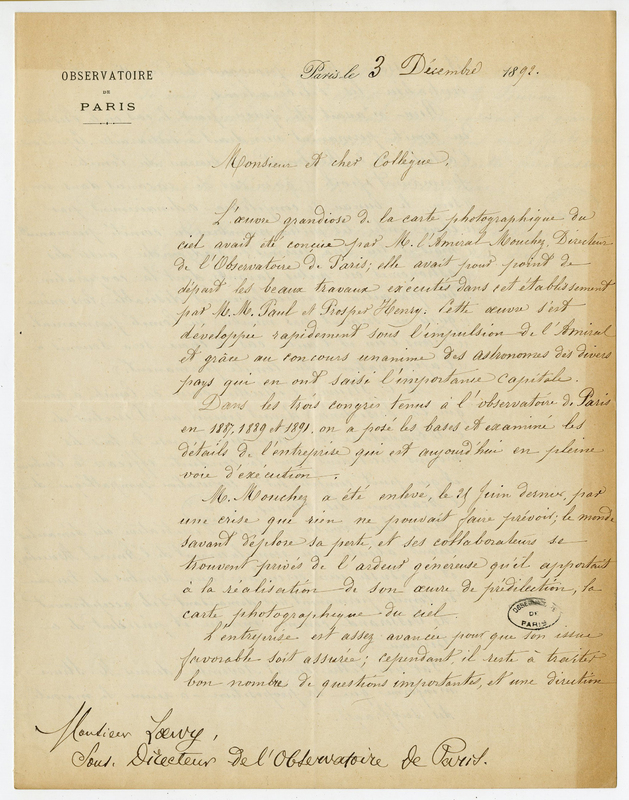 OBSERVATOIRE
DE
PARIS
Paris, le 3 Décembre 1892.
Monsieur et cher Collègue.
L'œuvre grandiose de la carte photographique du
ciel avait été conçue par M. l'Amiral Mouchez, Directeur
de l'Observatoire de Paris; elle avait pour point de
départ les beaux travaux exécutés dans cet établissement
par M.M. Paul et Prosper Henry. Cette œuvre s'est
développée rapidement sous l'impulsion de l'Amiral
et grâce au concours unanime des astronomes des divers
pays qui en ont saisi l'importance capitale.
Dans les trois congrès tenus à l'observatoire de Paris
en 1887, 1889 et 1891, on a posé les bases et examiné les
détails de l'entreprise qui est aujourd'hui en pleine
voie d'exécution.
M. Mouchez a été enlevé, le 25 Juin dernier, par
une crise que rien ne pouvait faire prévoir; le monde
savant déplore sa perte, et ses collaborateurs se
trouvent privés de l'ardeur généreuse qu'il apportait
à la réalisation de son œuvre de prédilection, la
carte photographique du ciel.
OBSERVATOIRE
DE
PARIS
L'entreprise est assez avancée pour que son issue
favorable soit assurée; cependant, il reste à traiter
bon nombre de questions importantes, et une direction
Monsieur Lœwy,
Sous-Directeur de l'Observatoire de Paris.